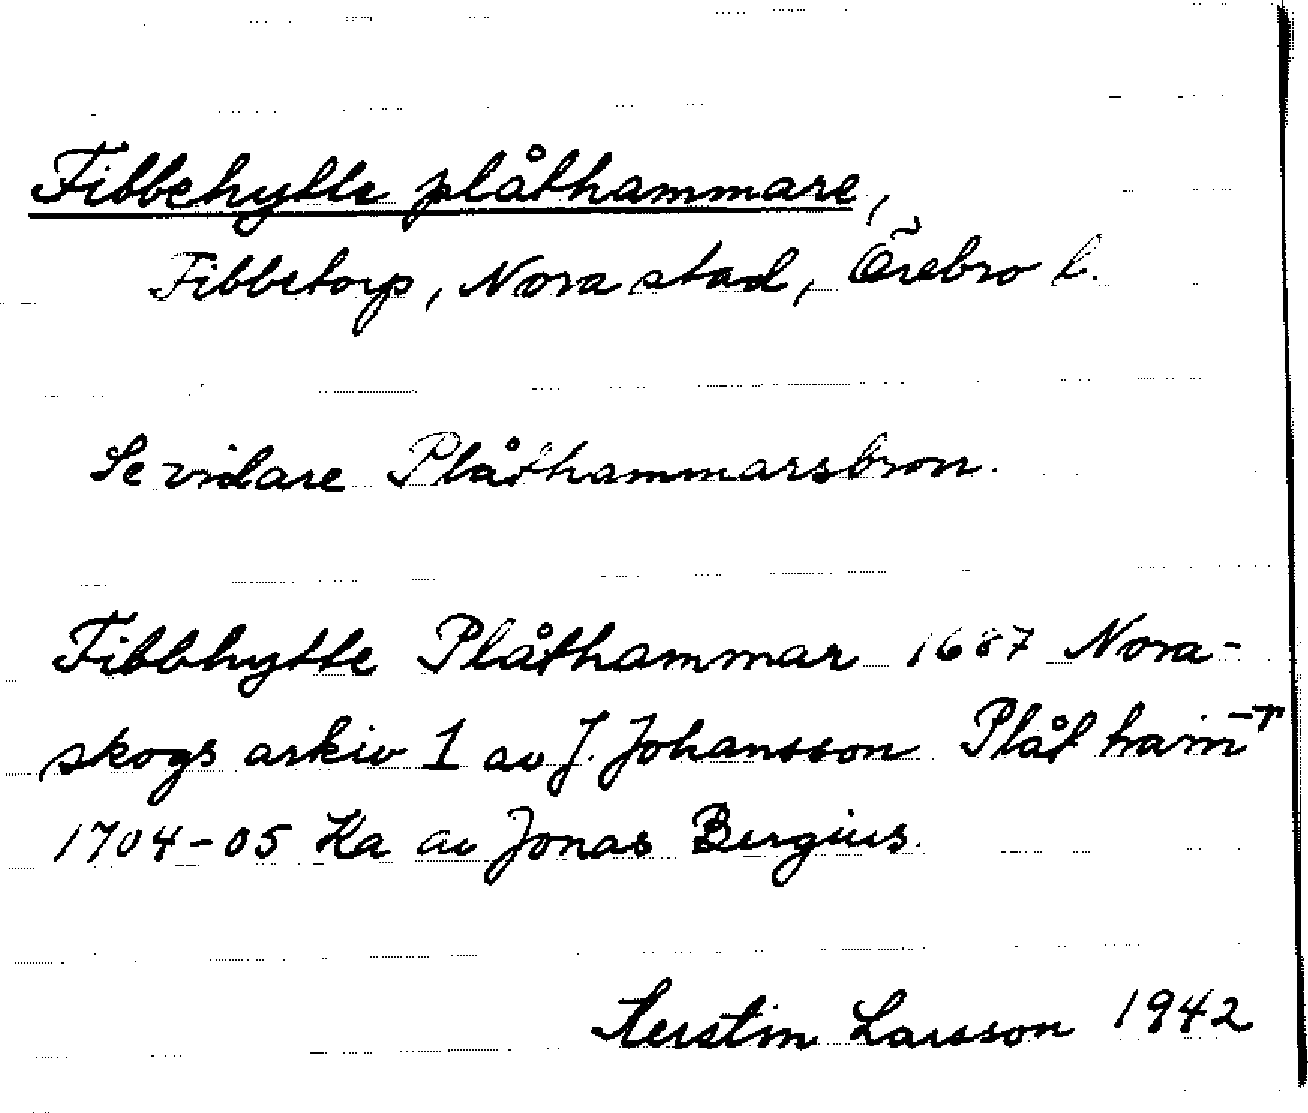 Fibbehytte plåthammare,
Fibbetorp, Nora stad, Örebro l.
Se vidare Plåthammarsbron.
Fibbhytte Plåthammar 1687 Nora-
skogs arkiv 1 av J. Johansson Plåt
1704-05 Ka av Jonas Bergius.
Kerstin Larsson 1942